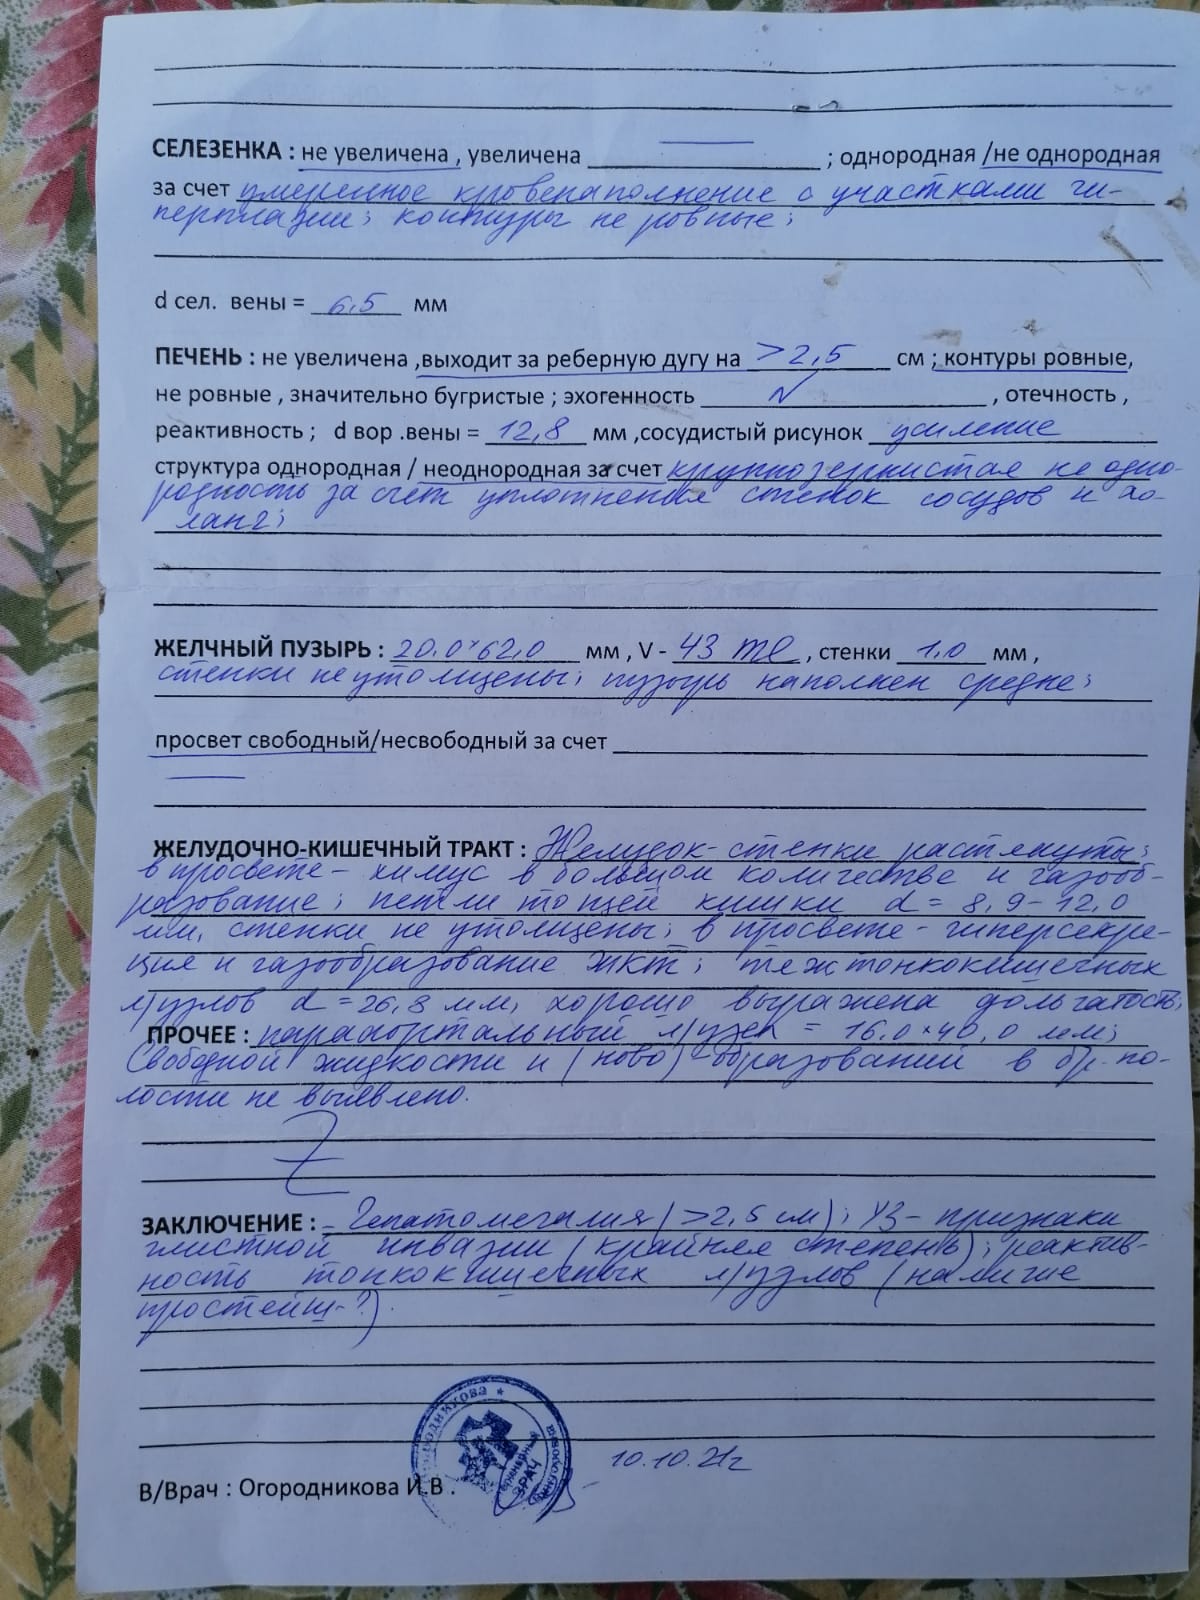 СЕЛЕЗЕНКА : не увеличена , увеличена ; однородная /не однородная
за счет умеренное кровенаполнение с участками ги-
перплазии; контуры не ровные;
d сел. вены = 6,5 мм
ПЕЧЕНЬ : не увеличена ,выходит за реберную дугу на >2,5 см ; контуры ровные,
не ровные , значительно бугристые ; эхогенность N , отечность ,
реактивность ; d вор .вены = 12,8 мм ,сосудистый рисунок усиление
структура однородная / неоднородная за счет крупнозернистая не одно-
родность за счет уплотнения стенок сосудов и хо-
ланг;
ЖЕЛЧНЫЙ ПУЗЫРЬ : 20,0×62,0 мм , V - 43 ml , стенки 1,0 мм ,
стенки не утолщены; пузырь наполнен средне;
просвет свободный/несвободный за счет
ЖЕЛУДОЧНО-КИШЕЧНЫЙ ТРАКТ : Желудок- стенки растянуты;
в просвете - химус в большом количестве и газооб-
разование; петли тощей кишки d = 8,9 - 12,0
мм, стенки не утолщены; в просвете - гиперсекре-
ция и газообразование жкт; тонкокишечных
л/узлов d = 26,8 мм, хорошо выражена дольчатость;
ПРОЧЕЕ : парааортальный л/узел = 16,0×40,0 мм;
Свободной жидкости и (ново)-образований в бр. по-
лости не выявлено.
ЗАКЛЮЧЕНИЕ : - Гепатомегалия (>2,5 см); УЗ- признаки
глистной инвазии (крайняя степень); реактив-
ность тонкокишечных л/узлов (наличие
простейш-?).
10.10.21г
В/Врач : Огородникова И.В .
ВРАЧ